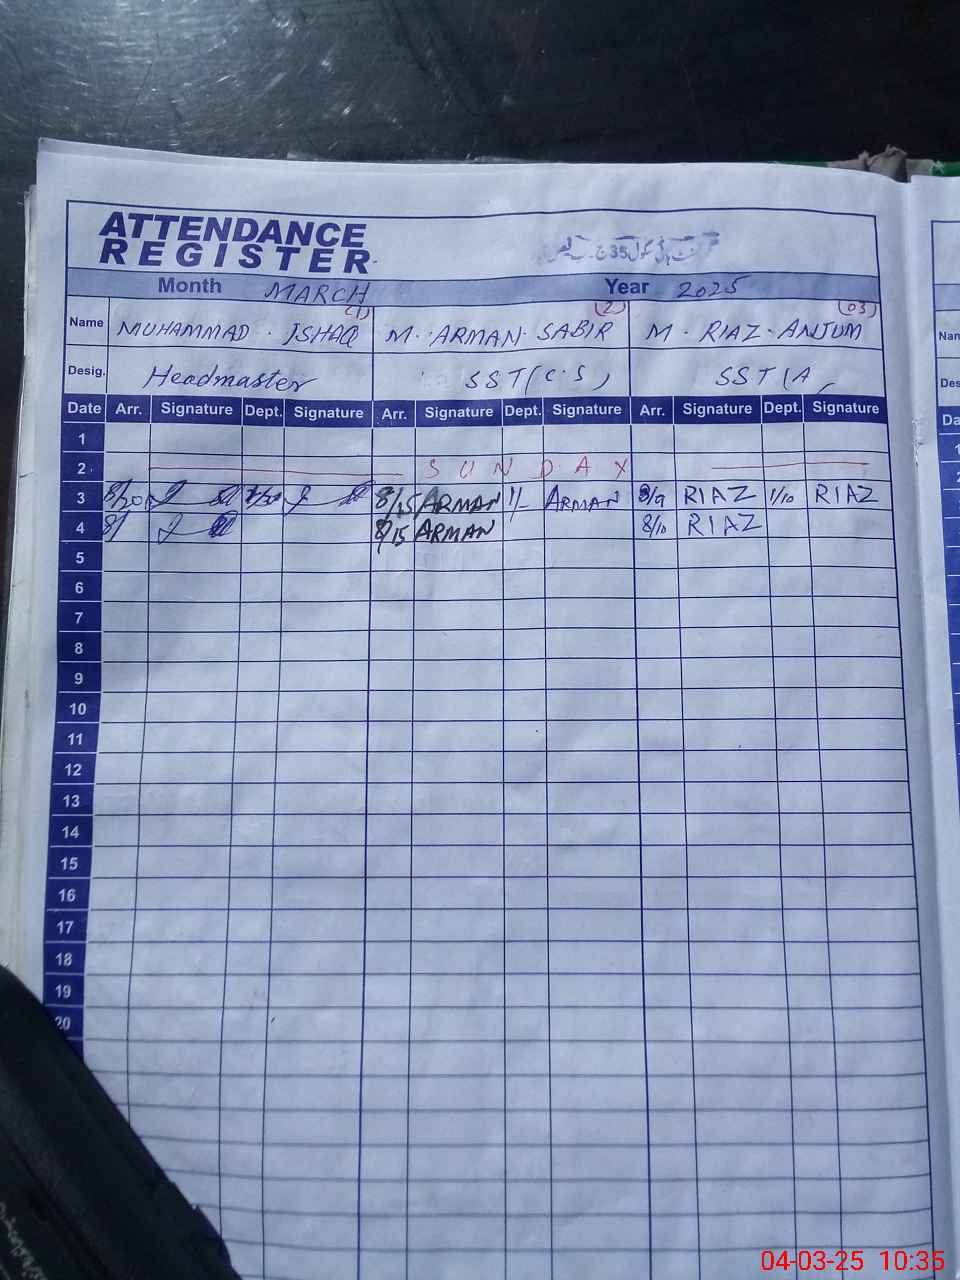 ATTENDANCE
REGISTER
Month MARCH Year 2025
(1) (2) (03)
Name MUHAMMAD . ISHAQ M. ARMAN SABIR M. RIAZ ANJUM
Desig. Headmaster SST(C.S) SST(A
Date Arr. Signature Dept. Signature Arr. Signature Dept. Signature Arr. Signature Dept. Signature
1
2 SUNDAY
3 8/20 8/15 ARMAN 1/- ARMAN 8/9 RIAZ 1/10 RIAZ
4 8/ 8/15 ARMAN 8/10 RIAZ
5
6
7
8
9
10
11
12
13
14
15
16
17
18
19
20
Nan
Des
Da
04-03-25 10:35